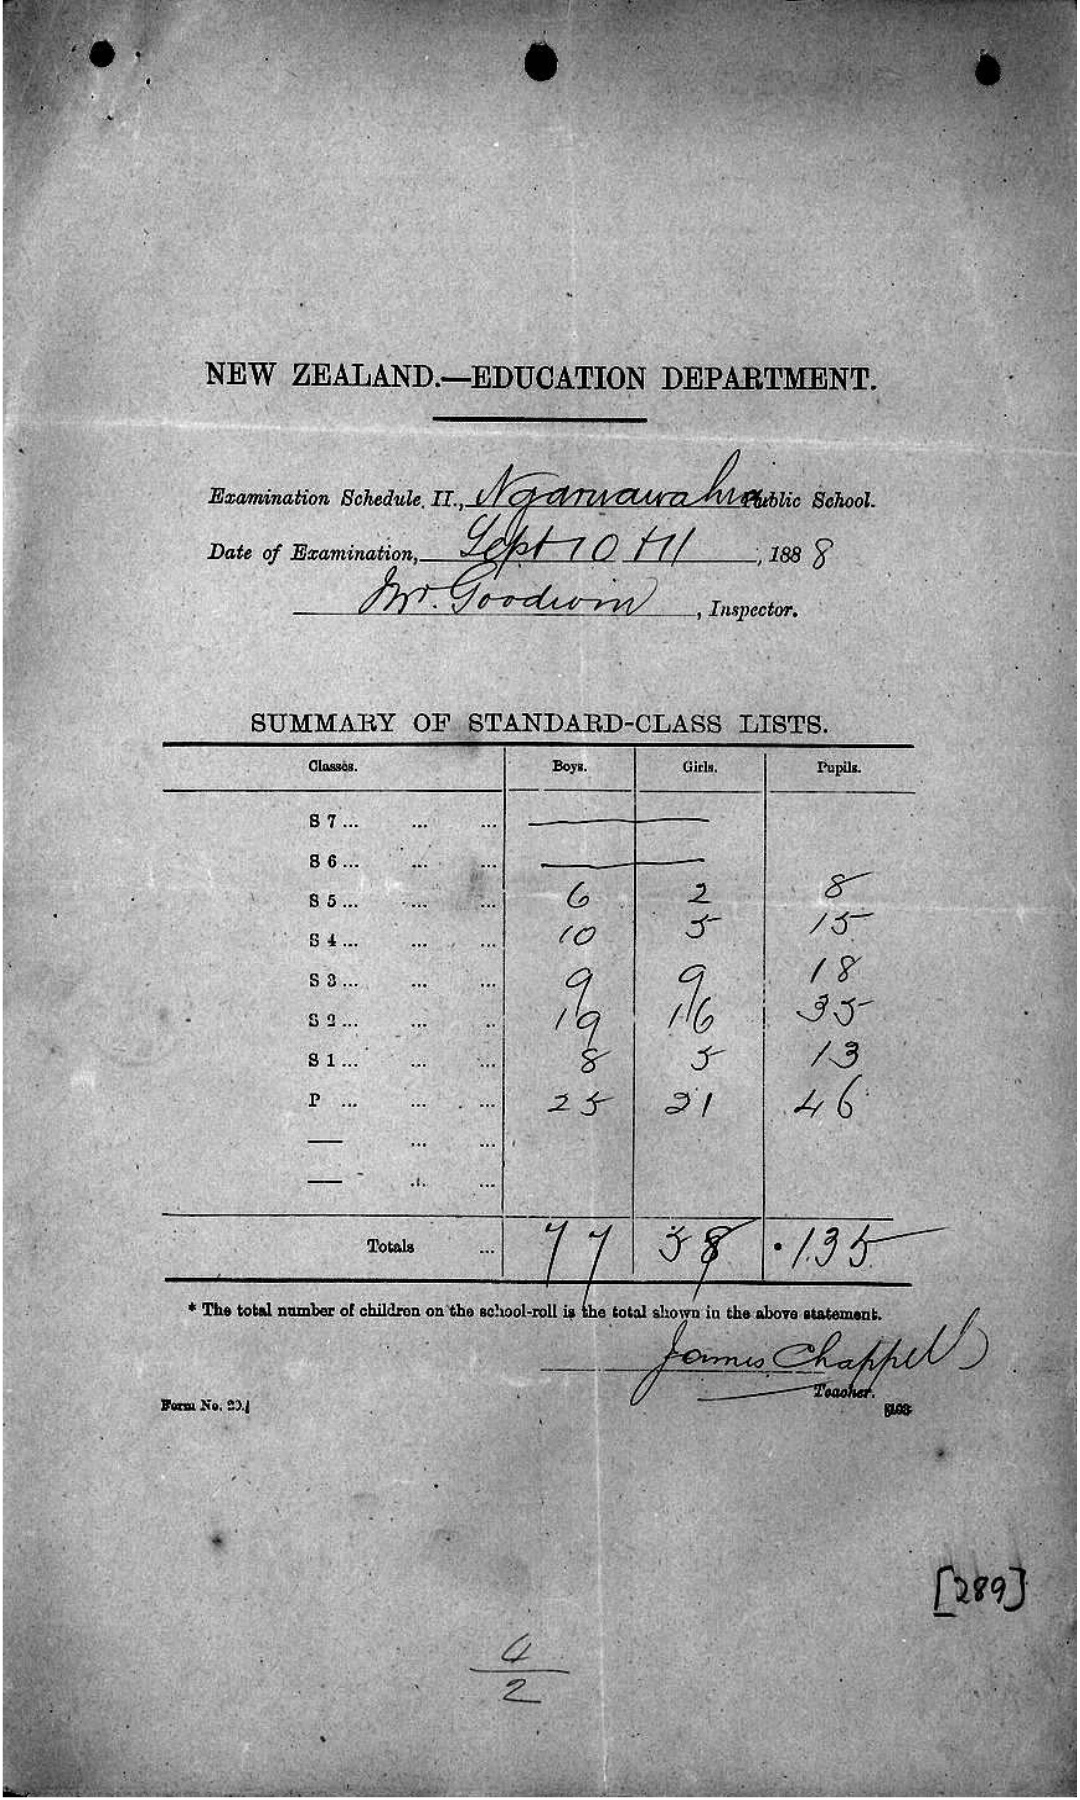 NEW ZEALAND.—EDUCATION DEPARTMENT.
Examination Schedule II., Ngaruawahia Public School.
Date of Examination, Sept 10 th, 1888
Mr. Goodwin, Inspector.
SUMMARY OF STANDARD-CLASS LISTS.
Classes. Boys. Girls. Pupils.
S 7... ... ... —
S 6... ... ... —
S 5... ... ... 6 2 8
S 4... ... ... 10 5 15
S 3... ... ... 9 9 18
S 2... ... .. 19 16 35
S 1... ... ... 8 5 13
P ... ... ... 25 21 46
— ... ...
— ... ...
Totals ... 77 58 135
* The total number of children on the school-roll is the total shown in the above statement.
James Chappell
Teacher.
Form No. 20.]
[289]
4
2